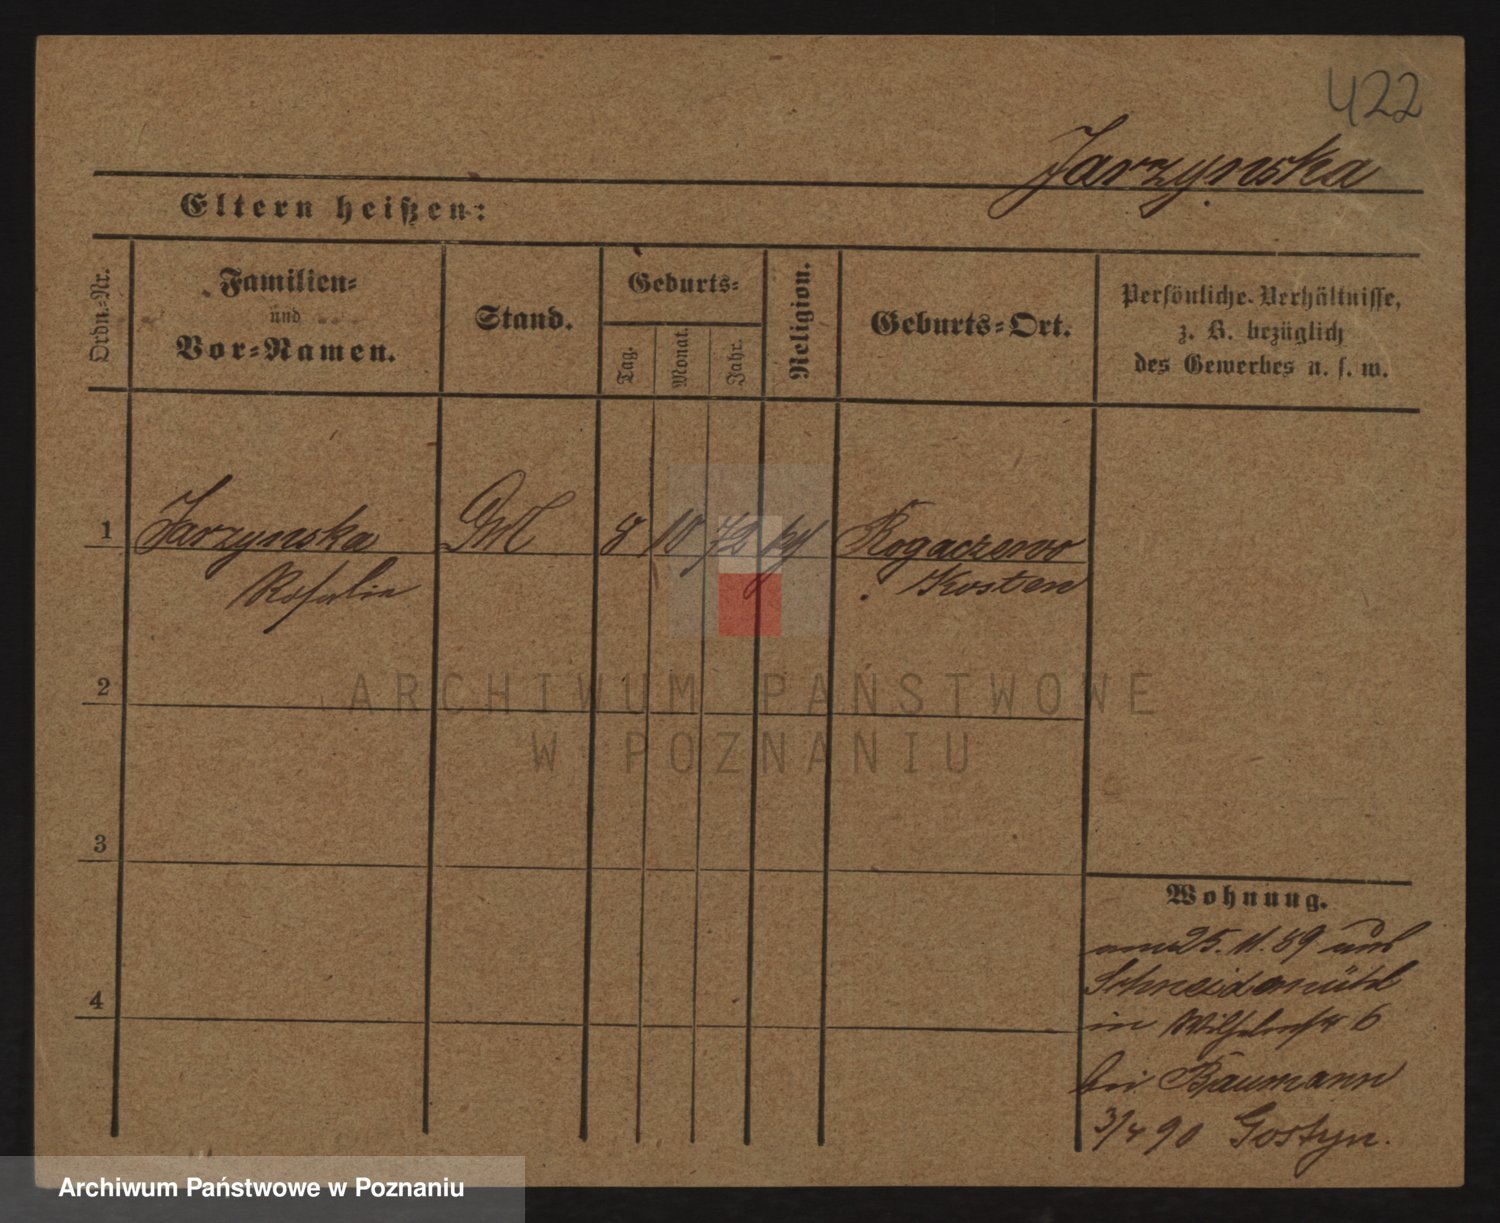 422
Jarzynska
Eltern heißen:
Ordn.-Nr.
Familien-
und
Vor-Namen.
Stand.
Geburts-
Tag.
Monat.
Jahr.
Religion.
Geburts-Ort.
Persönliche Verhältnisse,
z. B. bezüglich
des Gewerbes u. s. w.
1 Jarzynska 8 10 72 Rogaczewo
Rosalie Kosten
2
3
4
Wohnung.
25. 11. 89 aus
Schneidemühl
in 6
bei Baumann
3/4 90 Gostyn.
ARCHIWUM PAŃSTWOWE
W POZNANIU
Archiwum Państwowe w Poznaniu